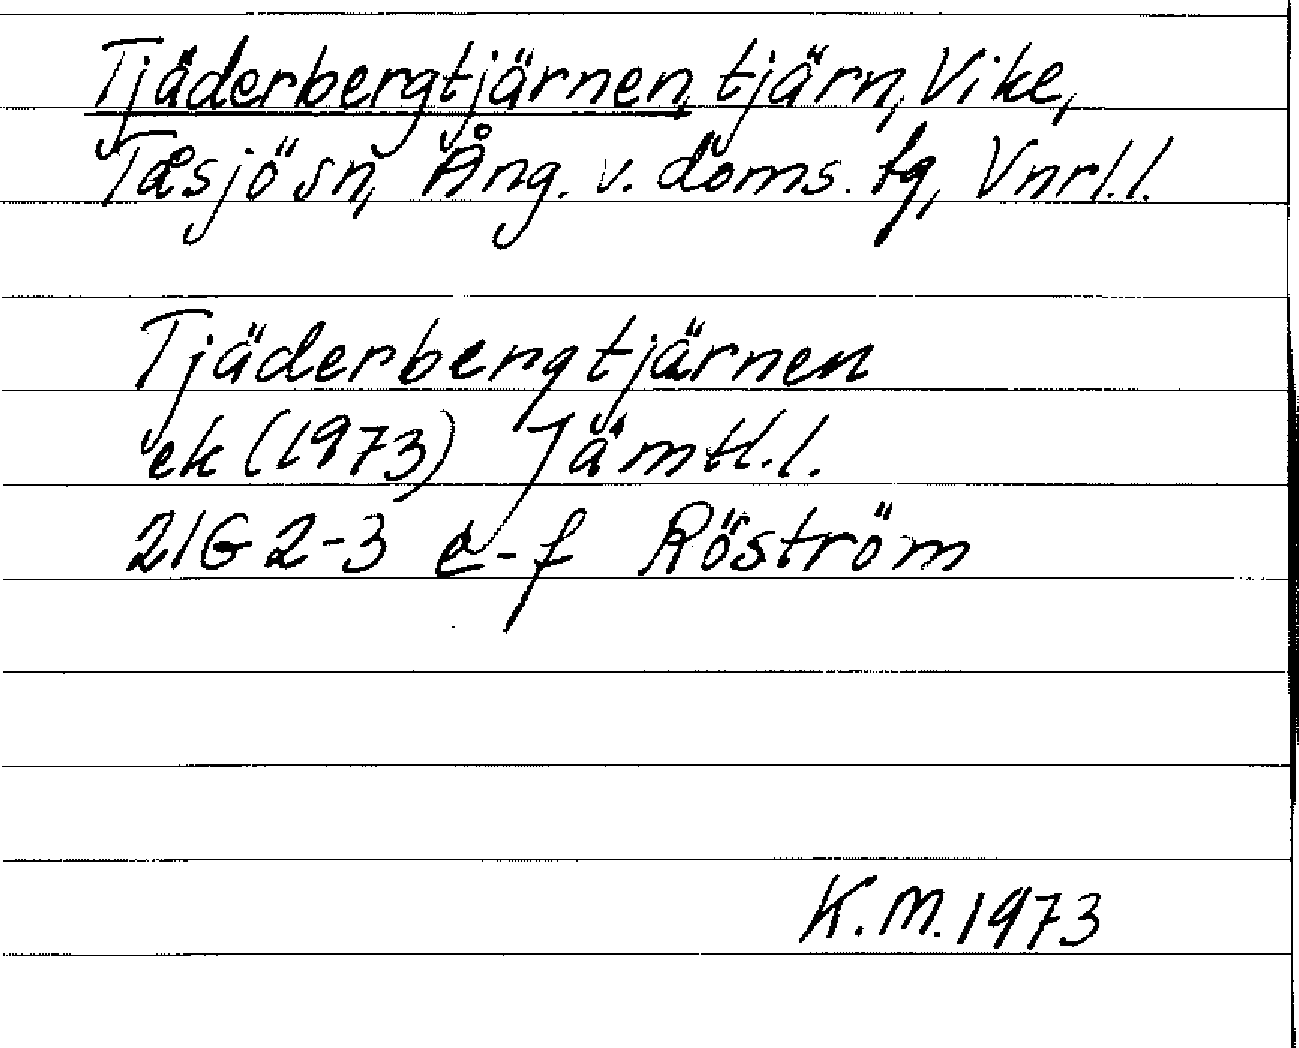 Tjäderbergtjärnen, tjärn, Vike,
Tåsjö sn, Ång. v. doms. tg, Vnrl.l.
Tjäderbergtjärnen
ek (1973) Jämtl.l.
21G 2-3 e-f Röström
K.M. 1973